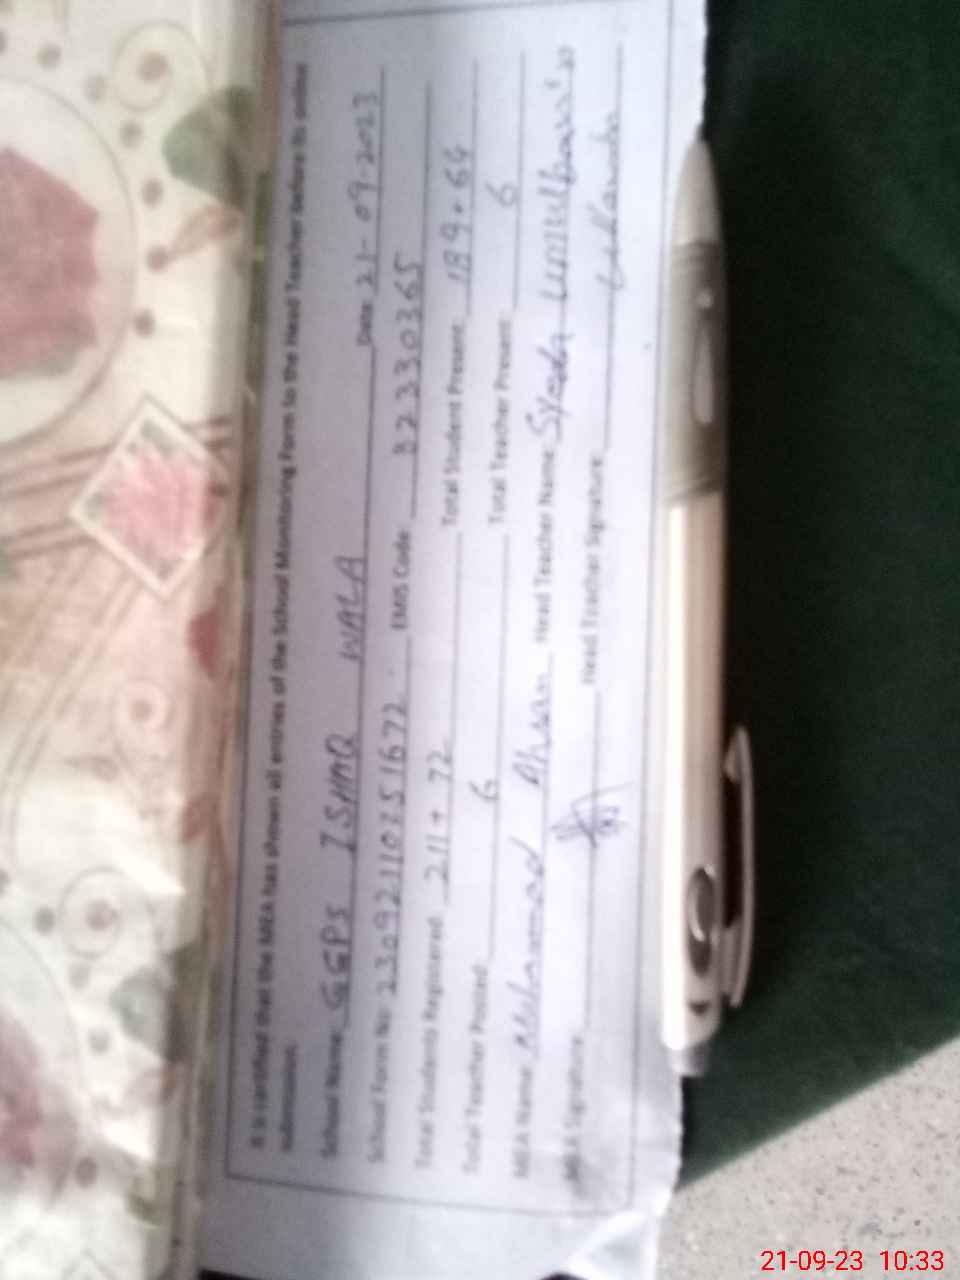 It is certified that the MEA has shown all entries of the School Monitoring Form to the Head Teacher before its online
submission.
School Name: GGPS ISHAQ WALA Date: 21-09-2023
School Form No: 23092110351672 EMIS Code: 32330365
Total Students Registered: 211+72 Total Student Present: 189+64
Total Teacher Posted: 6 Total Teacher Present: 6
MEA Name: Mohammad Ahsan Head Teacher Name: Syeda
MEA Signature: Head Teacher Signature:
21-09-23 10:33